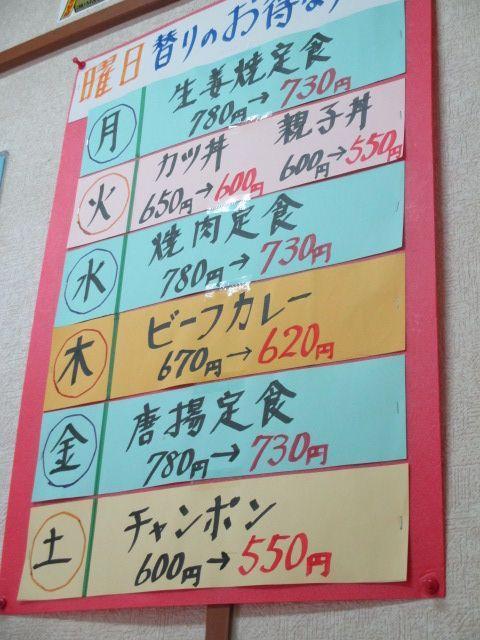 曜日替りのお得な
月 生姜焼定食
780円→730円
火 カツ丼 親子丼
650円→600円 600円→550円
水 焼肉定食
780円→730円
木 ビーフカレー
670円→620円
金 唐揚定食
780円→730円
土 チャンポン
600円→550円